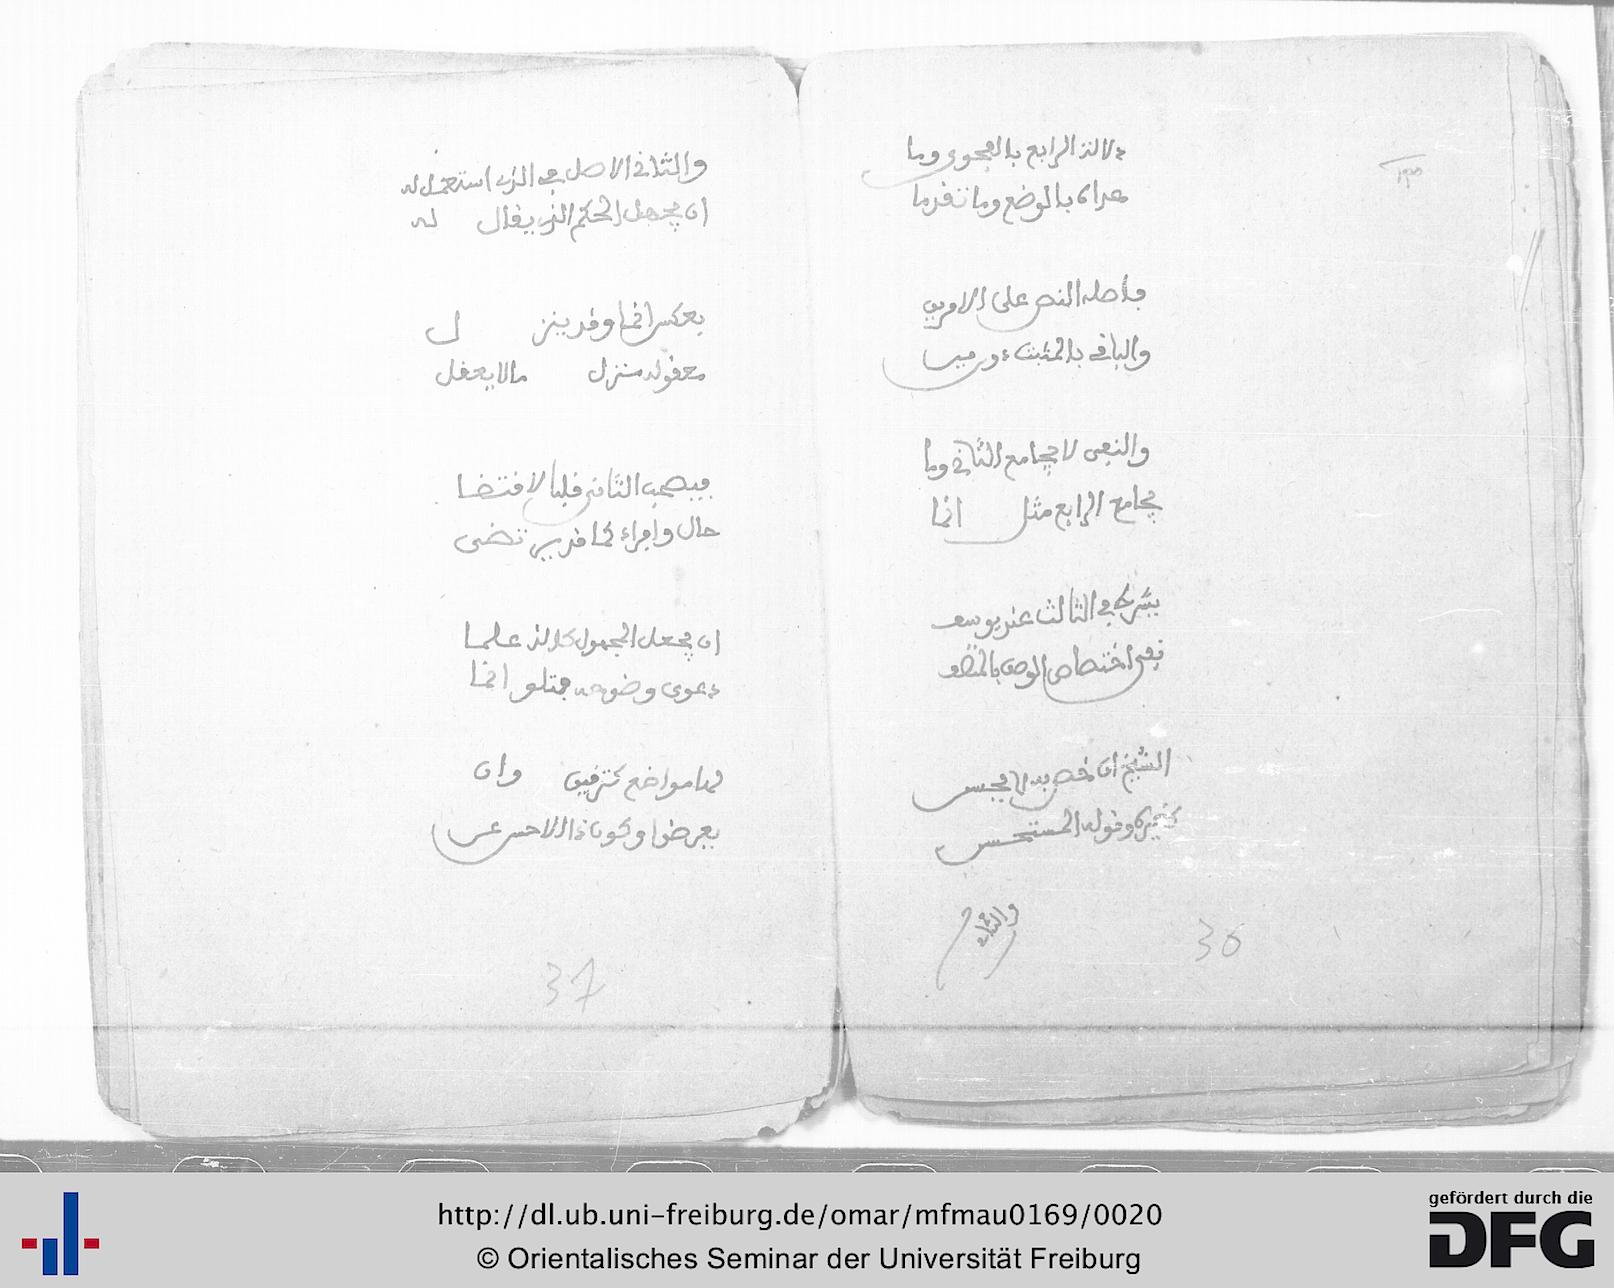 دلالة الرابع بالفحوى وما
عداه بالوضع وما تقدما
فأصله النص على الأمرين
والباقي بالمثبت دون مين
والنفي لا يجامع الثاني وما
يجامع الرابع مثل انما
بشركه في الثالث عند يوسف
نفي اختصاص الوصف بالمتصف
الشيخ ان خص به لا يحسن
كغيره وقوله المستحسن
والثان
36
والثاني الاصل في الذي استعمل له
ان يجهل الحكم الذي يقال له
بعكس انما وقد ينزل
معقوله منزل ما لا يعقل
فيصحب الثاني قلبا لاقتضا
حال وافراد كما قد يرتضى
ان يجعل المجهول كالذ علما
دعوى وضوحه فتلو انما
لها مواضع كتزفيق وان
يعرضوا وكون ذا الاحسن عن
37
http://dl.ub.uni-freiburg.de/omar/mfmau0169/0020
© Orientalisches Seminar der Universität Freiburg
gefördert durch die
DFG